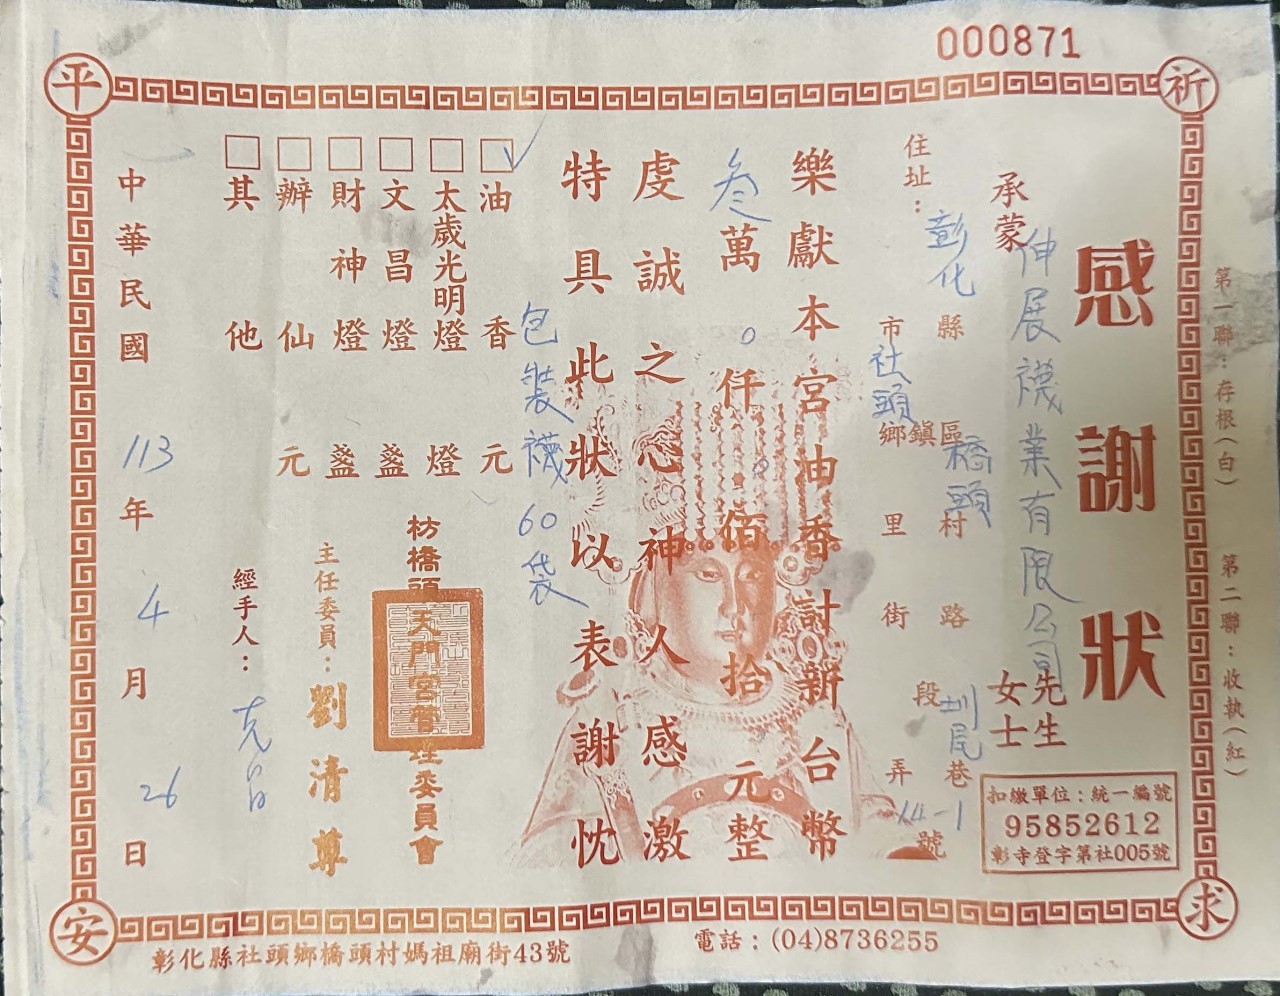 000871
祈求平安
第一聯：存根(白)
第二聯：收執(紅)
感謝狀
承蒙 伸展襪業有限公司 先生 女士
住址：彰化縣市社頭鄉鎮區橋頭村里路街段圳尾巷弄14-1號
扣繳單位：統一編號
95852612
彰寺登字第社005號
樂獻本宮油香計新台幣
叁萬0仟0佰拾元整
虔誠之心神人感激
特具此狀以表謝忱
包裝襪60袋
□✓油香 元
□太歲光明燈 燈
□文昌燈 盞
□財神燈 盞
□辦仙 元
□其他
枋橋頭天門宮管理委員會
主任委員：劉清尊
經手人：
中華民國113年4月26日
彰化縣社頭鄉橋頭村媽祖廟街43號
電話：(04)8736255